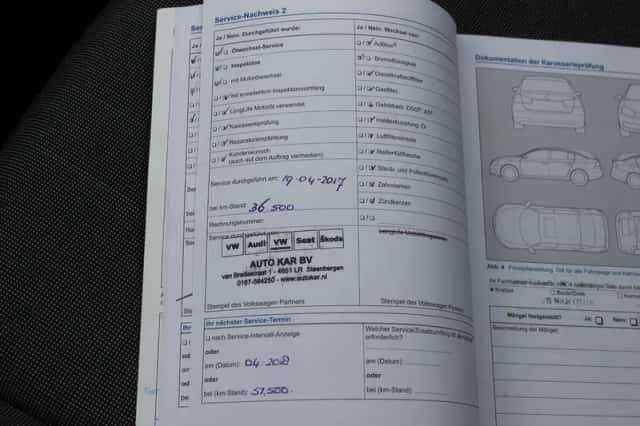 Service-Nachweis 2
Ja / Nein Durchgeführt wurde:
Ölwechsel-Service
Inspektion
mit Motorölwechsel
mit erweitertem Inspektionsumfang
LongLife Motoröl verwendet
Karosserieprüfung
Reparaturempfehlung
Kundenwunsch
(auch auf dem Auftrag vermerken)
Service durchgeführt am: 19-04-2017
bei km-Stand: 36 500
Rechnungsnummer:
Service durchgeführt
VW Audi VW Seat Škoda
AUTO KAR BV
4651 LR Steenbergen
0167-564250 - www.autokar.nl
Stempel des Volkswagen-Partners
Ja / Nein Wechsel von:
AdBlue®
Bremsflüssigkeit
Dieselkraftstofffilter
Gasfilter
Haldexkupplung: Öl
Luftfiltereinsatz
Reifenfüllflasche
Staub- und Pollenfiltereinsatz
Zahnriemen
Zündkerzen
Stempel des Volkswagen
Ihr nächster Service-Termin:
nach Service-Intervall-Anzeige
oder
am (Datum): 04-2018
oder
bei (km-Stand): 51,500
Welcher Service/Zusatzumfang ist
erforderlich?
am (Datum):
oder
bei (km-Stand):
Dokumentation der Karosserieprüfung
Abb. 4 Prinzipdarstellung. Gilt für alle Fahrzeug
Mängel festgestellt? Ja: Nein:
Beschreibung der Mängel: